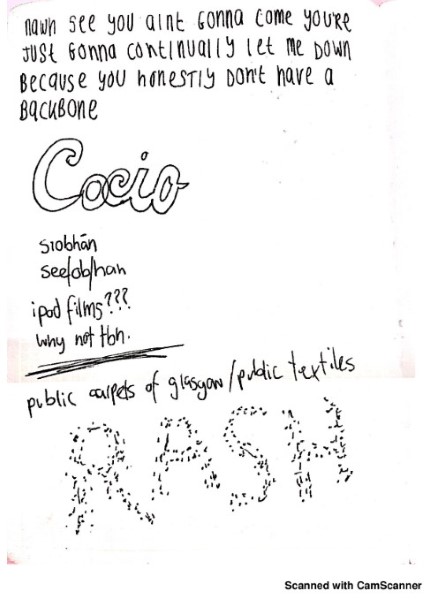 nawh see you aint gonna come you're
just gonna continually let me down
because you honestly don't have a
backbone
Cocio
siobhān
see/ob/han
ipod films???
why not tbh.
public carpets of glasgow/public textiles
RASH
Scanned with CamScanner